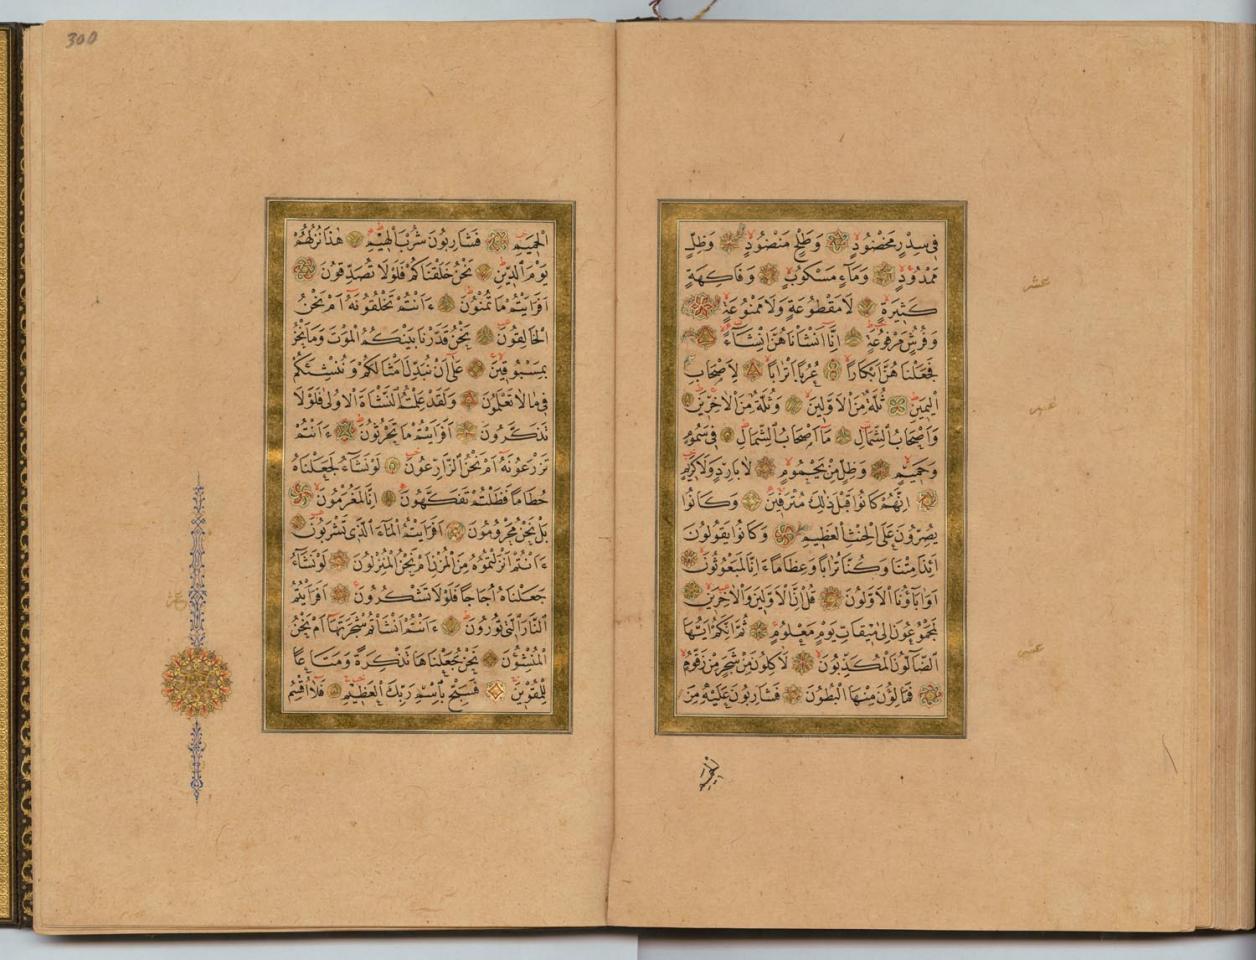 فِى سِدْرٍ مَخْضُودٍ وَطَلْحٍ مَنْضُودٍ وَظِلٍّ
مَمْدُودٍ وَمَآءٍ مَسْكُوبٍ وَفَاكِهَةٍ
كَثِيرَةٍ لَا مَقْطُوعَةٍ وَلَا مَمْنُوعَةٍ
وَفُرُشٍ مَرْفُوعَةٍ اِنَّآ اَنْشَاْنَاهُنَّ اِنْشَآءً
فَجَعَلْنَاهُنَّ اَبْكَارًا عُرُبًا اَتْرَابًا لِاَصْحَابِ
الْيَمِينِ ثُلَّةٌ مِنَ الْاَوَّلِينَ وَثُلَّةٌ مِنَ الْاٰخِرِينَ
وَاَصْحَابُ الشِّمَالِ مَآ اَصْحَابُ الشِّمَالِ فِى سَمُومٍ
وَحَمِيمٍ وَظِلٍّ مِنْ يَحْمُومٍ لَا بَارِدٍ وَلَا كَرِيمٍ
اِنَّهُمْ كَانُوا قَبْلَ ذٰلِكَ مُتْرَفِينَ وَكَانُوا
يُصِرُّونَ عَلَى الْحِنْثِ الْعَظِيمِ وَكَانُوا يَقُولُونَ
اَئِذَا مِتْنَا وَكُنَّا تُرَابًا وَعِظَامًا ءَاِنَّا لَمَبْعُوثُونَ
اَوَاٰبَآؤُنَا الْاَوَّلُونَ قُلْ اِنَّ الْاَوَّلِينَ وَالْاٰخِرِينَ
لَمَجْمُوعُونَ اِلٰى مِيقَاتِ يَوْمٍ مَعْلُومٍ ثُمَّ اِنَّكُمْ اَيُّهَا
الضَّآلُّونَ الْمُكَذِّبُونَ لَاٰكِلُونَ مِنْ شَجَرٍ مِنْ زَقُّومٍ
فَمَالِؤُنَ مِنْهَا الْبُطُونَ فَشَارِبُونَ عَلَيْهِ مِنَ
الحميم
عشر
عشر
عشر
300
الْحَمِيمِ فَشَارِبُونَ شُرْبَ الْهِيمِ هٰذَا نُزُلُهُمْ
يَوْمَ الدِّينِ نَحْنُ خَلَقْنَاكُمْ فَلَوْلَا تُصَدِّقُونَ
اَفَرَاَيْتُمْ مَا تُمْنُونَ ءَاَنْتُمْ تَخْلُقُونَهُ اَمْ نَحْنُ
الْخَالِقُونَ نَحْنُ قَدَّرْنَا بَيْنَكُمُ الْمَوْتَ وَمَا نَحْنُ
بِمَسْبُوقِينَ عَلٰٓى اَنْ نُبَدِّلَ اَمْثَالَكُمْ وَنُنْشِئَكُمْ
فِى مَا لَا تَعْلَمُونَ وَلَقَدْ عَلِمْتُمُ النَّشْاَةَ الْاُولٰى فَلَوْلَا
تَذَكَّرُونَ اَفَرَاَيْتُمْ مَا تَحْرُثُونَ ءَاَنْتُمْ
تَزْرَعُونَهُ اَمْ نَحْنُ الزَّارِعُونَ لَوْ نَشَآءُ لَجَعَلْنَاهُ
حُطَامًا فَظَلْتُمْ تَفَكَّهُونَ اِنَّا لَمُغْرَمُونَ
بَلْ نَحْنُ مَحْرُومُونَ اَفَرَاَيْتُمُ الْمَآءَ الَّذِى تَشْرَبُونَ
ءَاَنْتُمْ اَنْزَلْتُمُوهُ مِنَ الْمُزْنِ اَمْ نَحْنُ الْمُنْزِلُونَ لَوْ نَشَآءُ
جَعَلْنَاهُ اُجَاجًا فَلَوْلَا تَشْكُرُونَ اَفَرَاَيْتُمُ
النَّارَ الَّتِى تُورُونَ ءَاَنْتُمْ اَنْشَاْتُمْ شَجَرَتَهَآ اَمْ نَحْنُ
الْمُنْشِؤُنَ نَحْنُ جَعَلْنَاهَا تَذْكِرَةً وَمَتَاعًا
لِلْمُقْوِينَ فَسَبِّحْ بِاسْمِ رَبِّكَ الْعَظِيمِ فَلَآ اُقْسِمُ